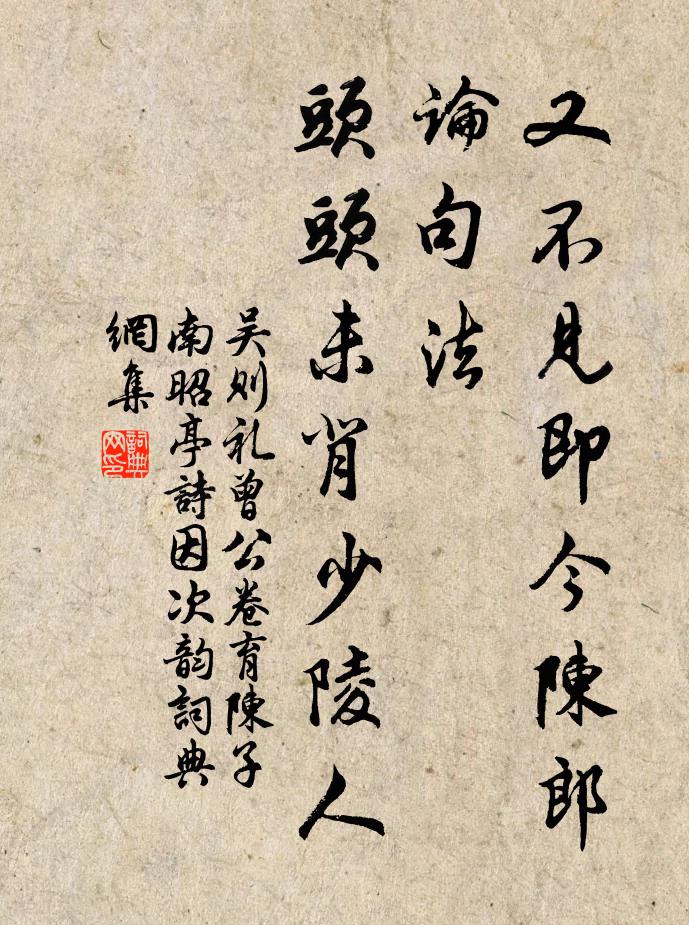 又不見即今陳郎
論句法
頭頭未背少陵人
吴则礼曾公卷育陳子
南昭亭詩因次韵詞典
網集
詞典
网印